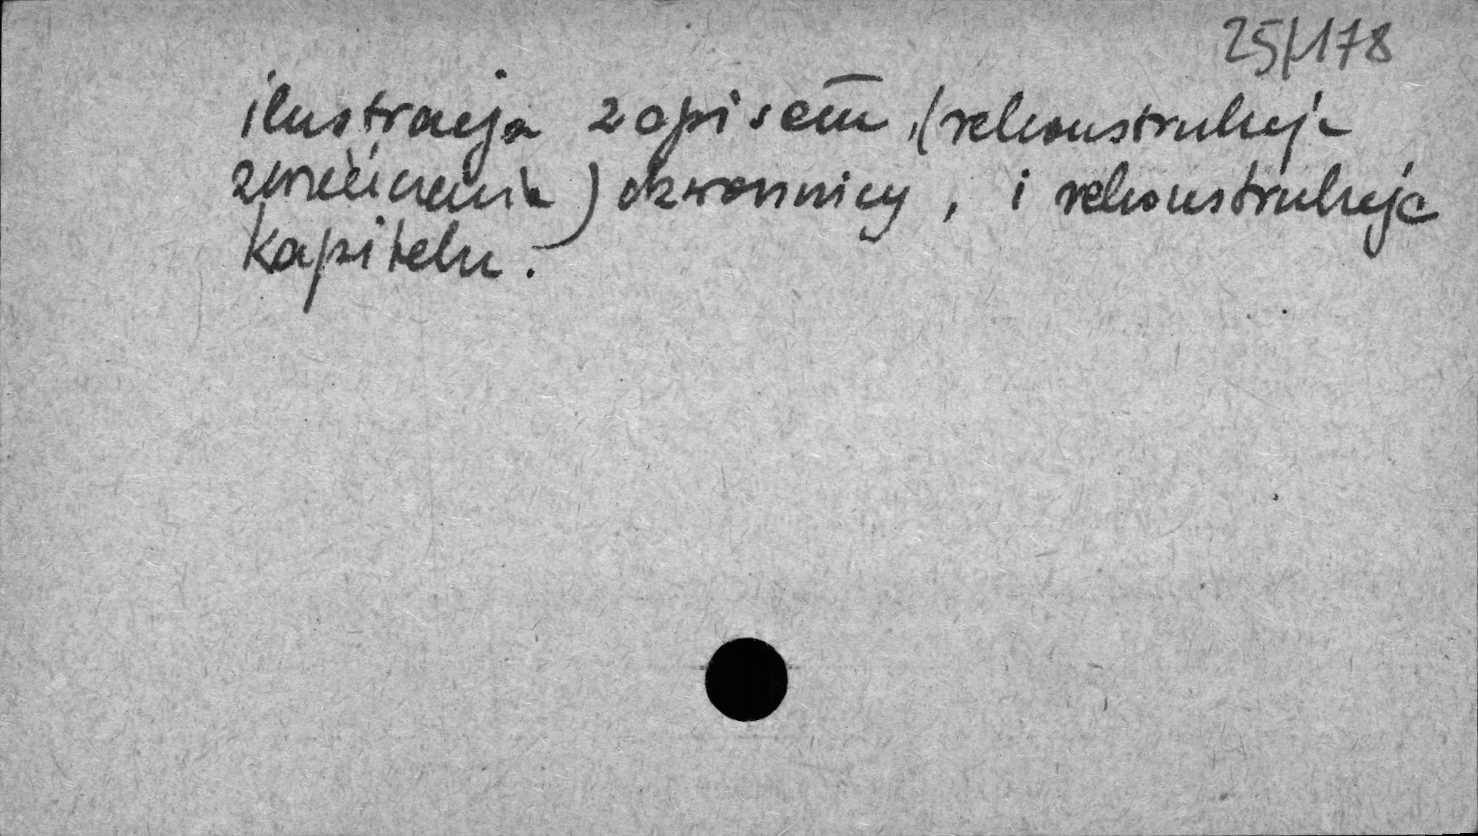 25/178
ilustracja z opisem, (rekonstrukcja
zwieńczenia) dzwonnicy, i rekonstrukcja
kapitelu.